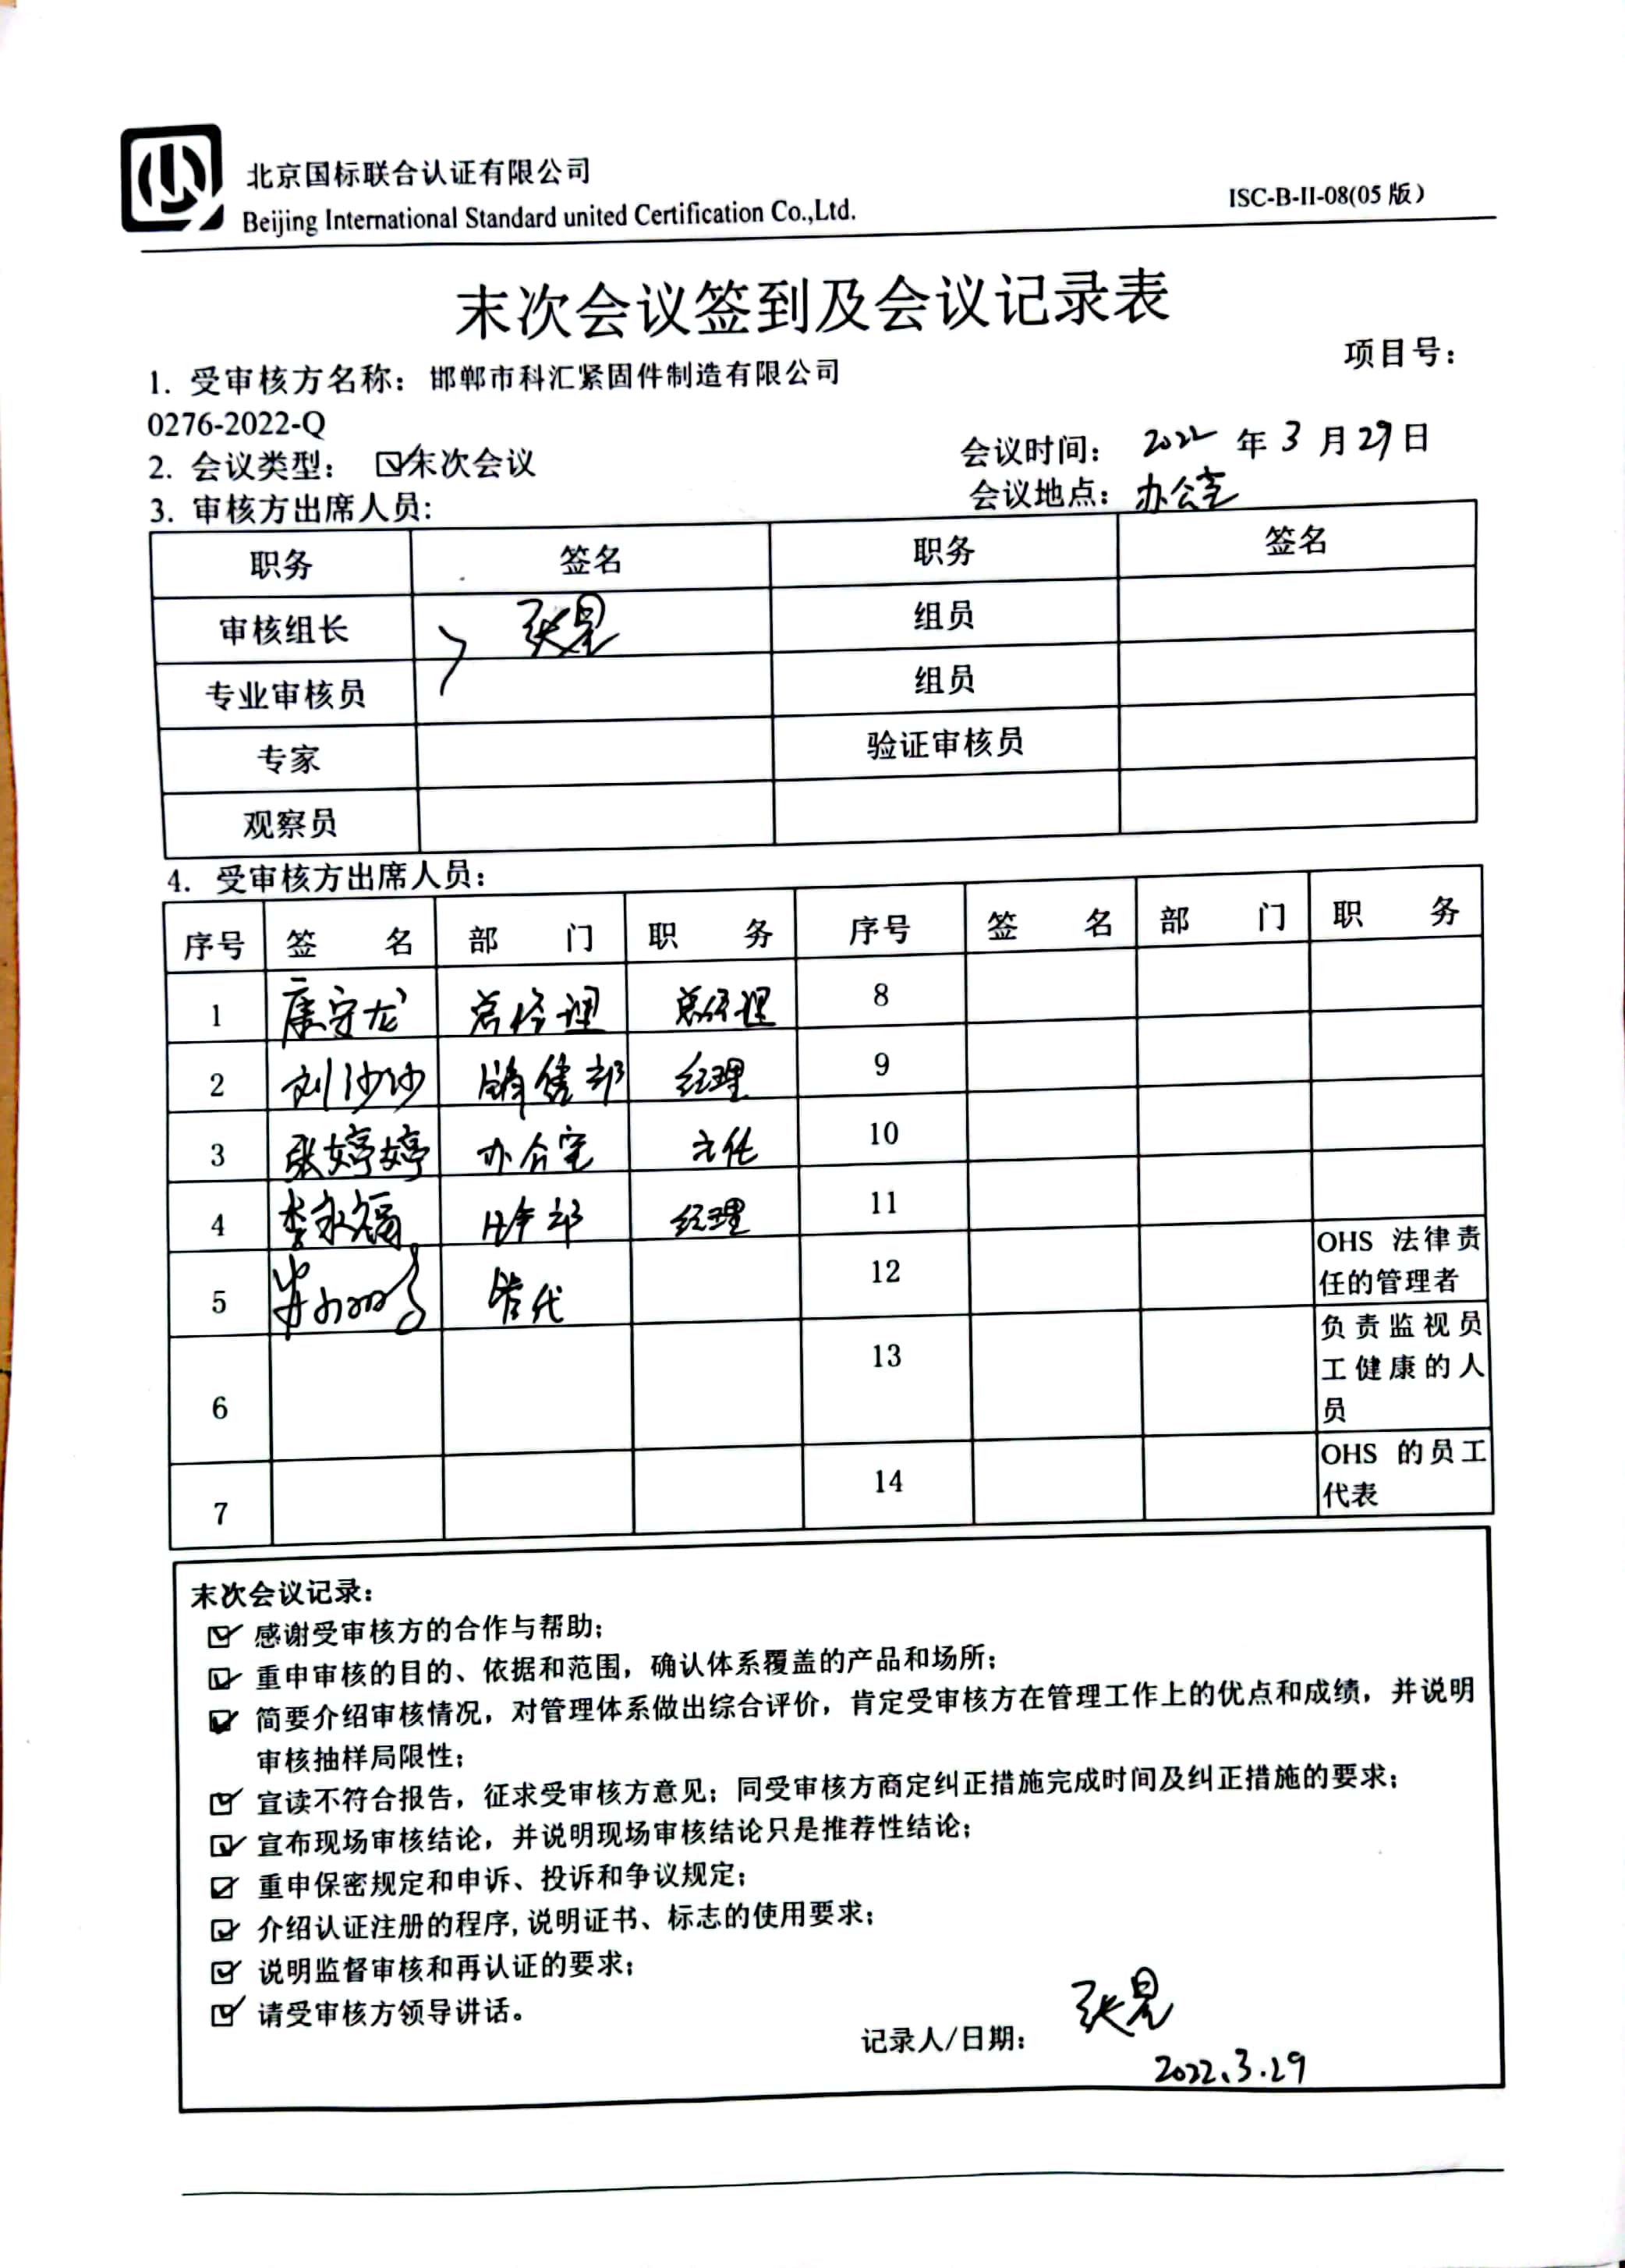 北京国标联合认证有限公司
Beijing International Standard united Certification Co.,Ltd.
ISC-B-II-08(05 版)
末次会议签到及会议记录表
1. 受审核方名称：邯郸市科汇紧固件制造有限公司 项目号：
0276-2022-Q
2. 会议类型： ☑末次会议 会议时间： 2022 年 3 月 29 日
3. 审核方出席人员: 会议地点：办公室
职务 签名 职务 签名
审核组长 张星 组员
专业审核员 组员
专家 验证审核员
观察员
4. 受审核方出席人员：
序号 签 名 部 门 职 务 序号 签 名 部 门 职 务
1 康守龙 总经理 总经理 8
2 刘沙沙 销售部 经理 9
3 张婷婷 办公室 主任 10
4 李永福 经理 11
5 管代 12 OHS 法律责任的管理者
6 13 负责监视员工健康的人员
7 14 OHS 的员工代表
末次会议记录：
☑ 感谢受审核方的合作与帮助；
☑ 重申审核的目的、依据和范围，确认体系覆盖的产品和场所；
☑ 简要介绍审核情况，对管理体系做出综合评价，肯定受审核方在管理工作上的优点和成绩，并说明
审核抽样局限性；
☑ 宣读不符合报告，征求受审核方意见；同受审核方商定纠正措施完成时间及纠正措施的要求；
☑ 宣布现场审核结论，并说明现场审核结论只是推荐性结论；
☑ 重申保密规定和申诉、投诉和争议规定；
☑ 介绍认证注册的程序,说明证书、标志的使用要求；
☑ 说明监督审核和再认证的要求；
☑ 请受审核方领导讲话。
记录人/日期： 张星
2022.3.29